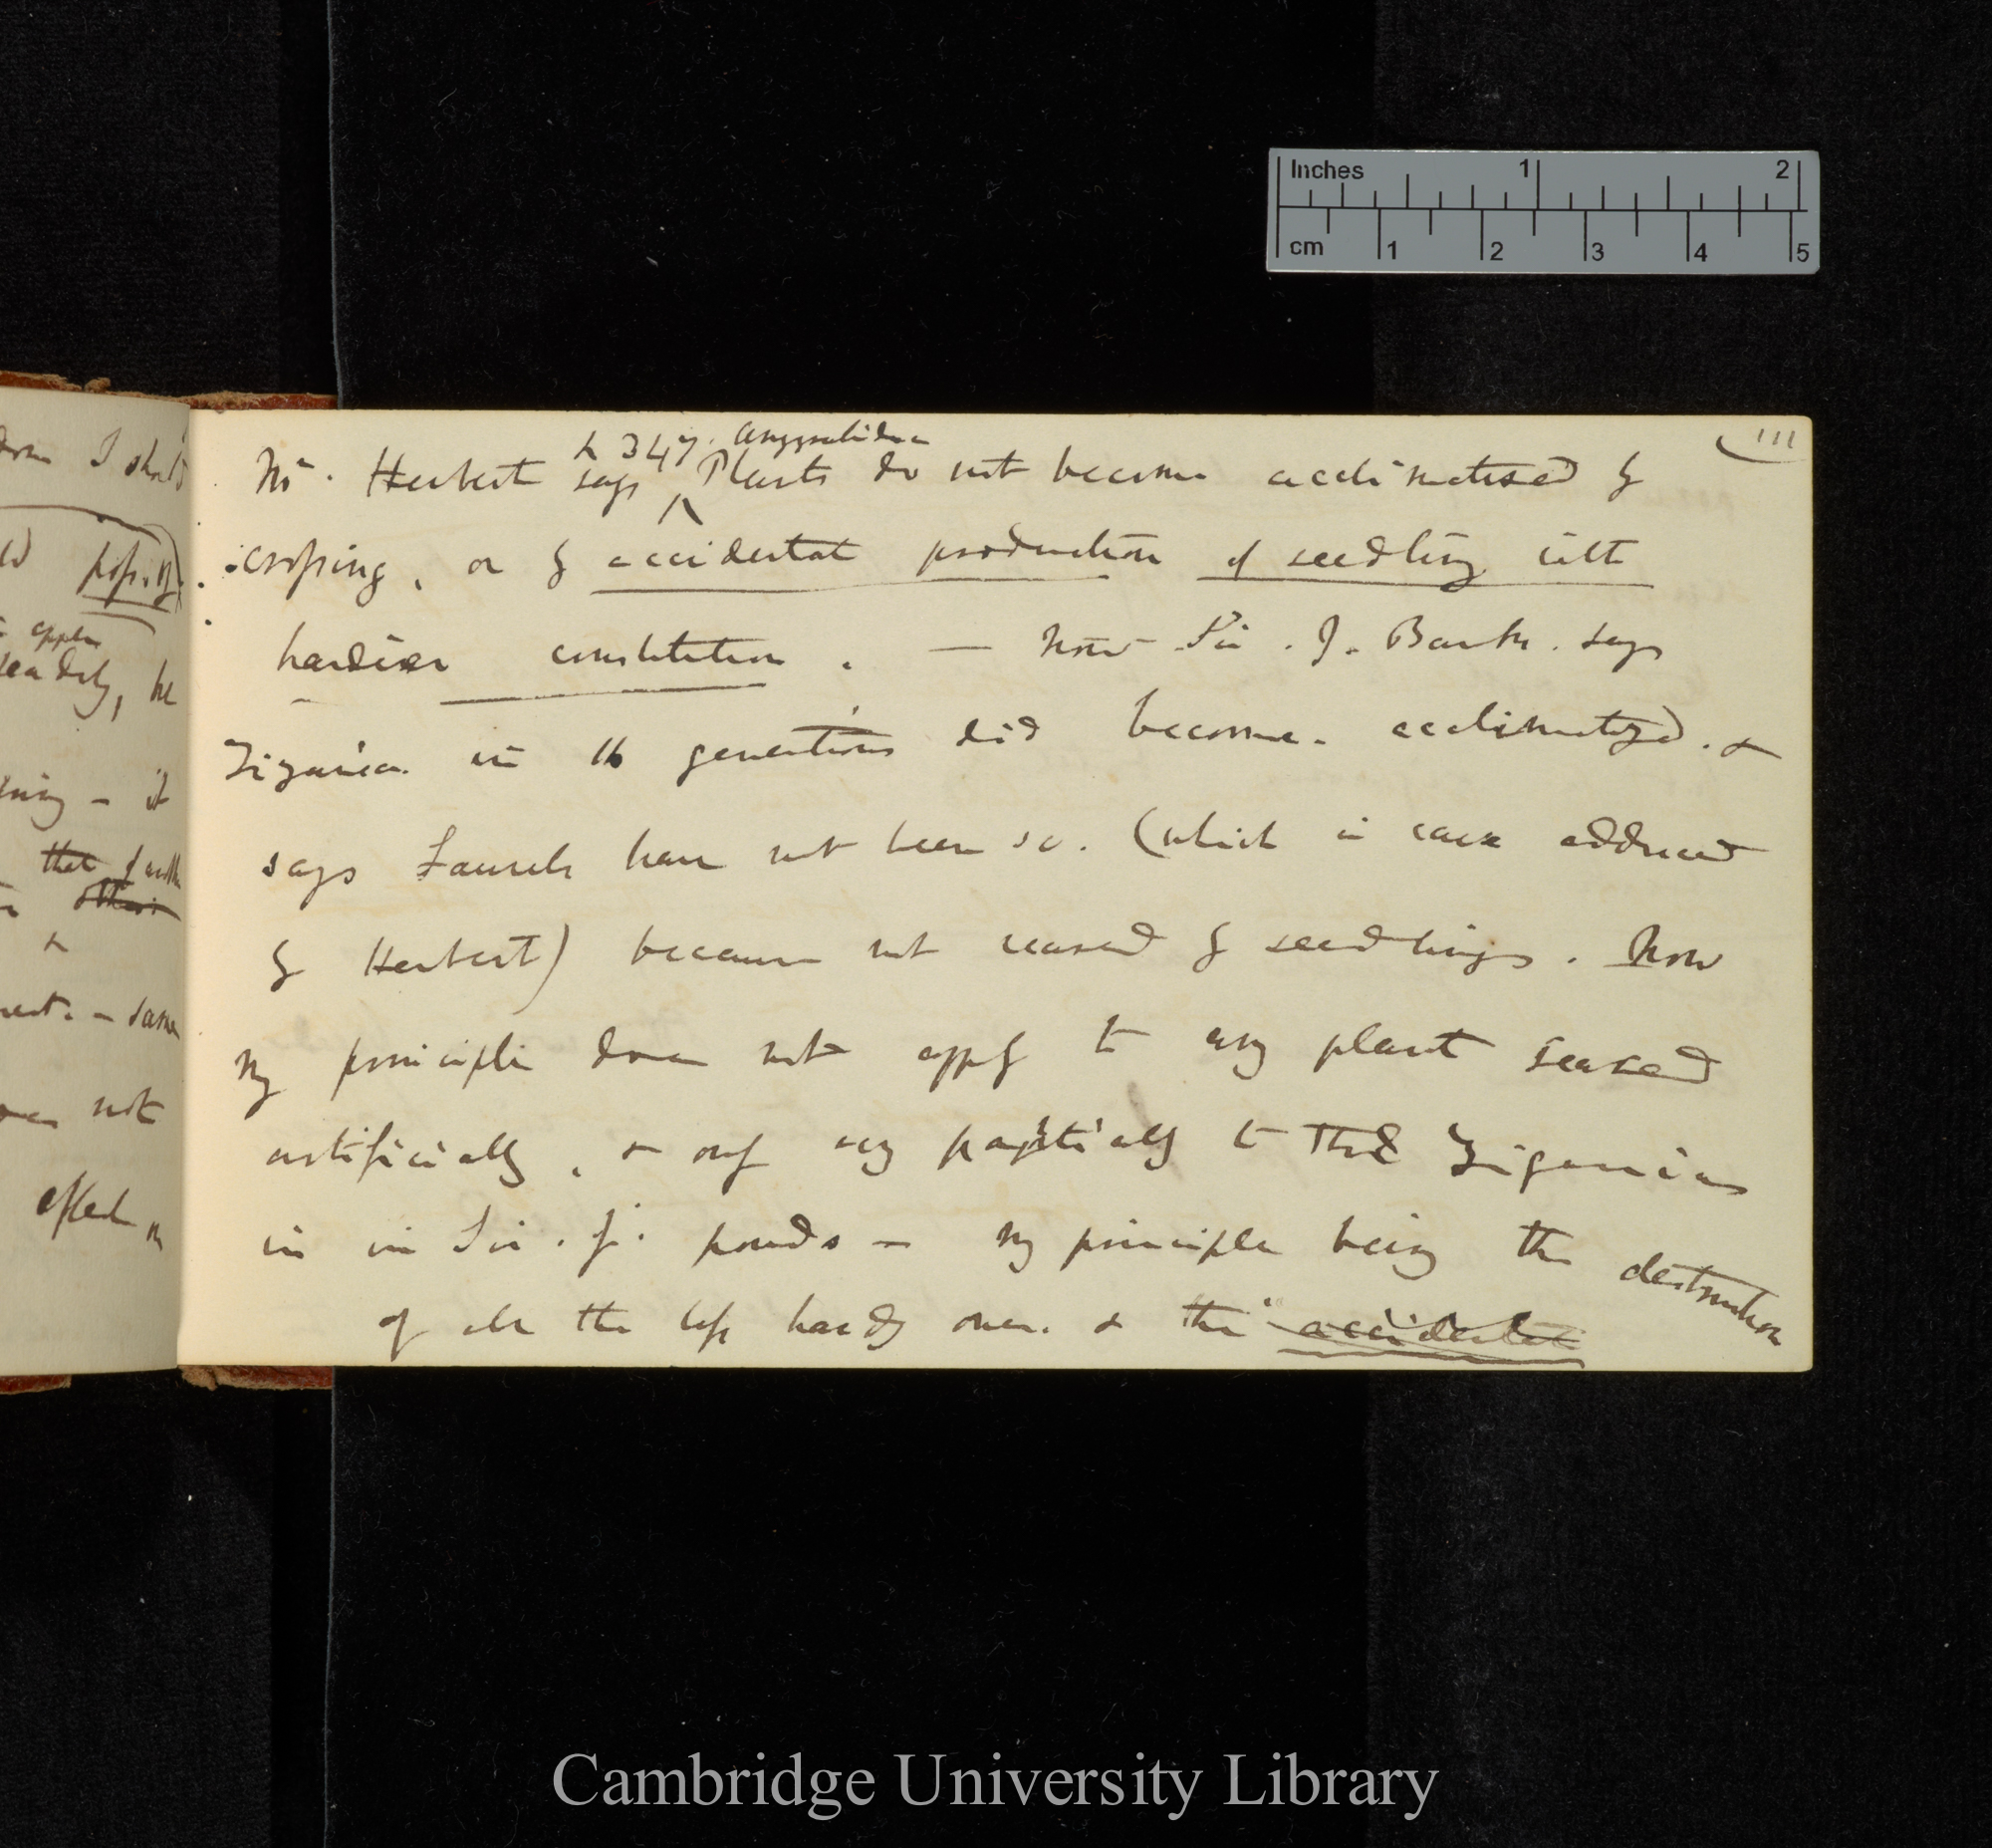 Inches 1 2
cm 1 2 3 4 5
I should
apple
it
that
other
not
effect on
111
p 347. Amaryllidae
Mr. Herbert says ^ Plants do not become acclimatised by
croping, or by accidental production of seedling with
hardier constitution. — Now Sir. J. Banks. says
Zizania in 16 generations did become. acclimatized. &
says Laurels have not been so. (which is case adduced
by Herbert) because not reared by seedlings. Now
my principle does not apply to any plant reared
artificially, & only very partially to the Zizanias
in in Sir. J. ponds — my principle being the destruction
of all the less hardy ones. & the accidental
Cambridge University Library